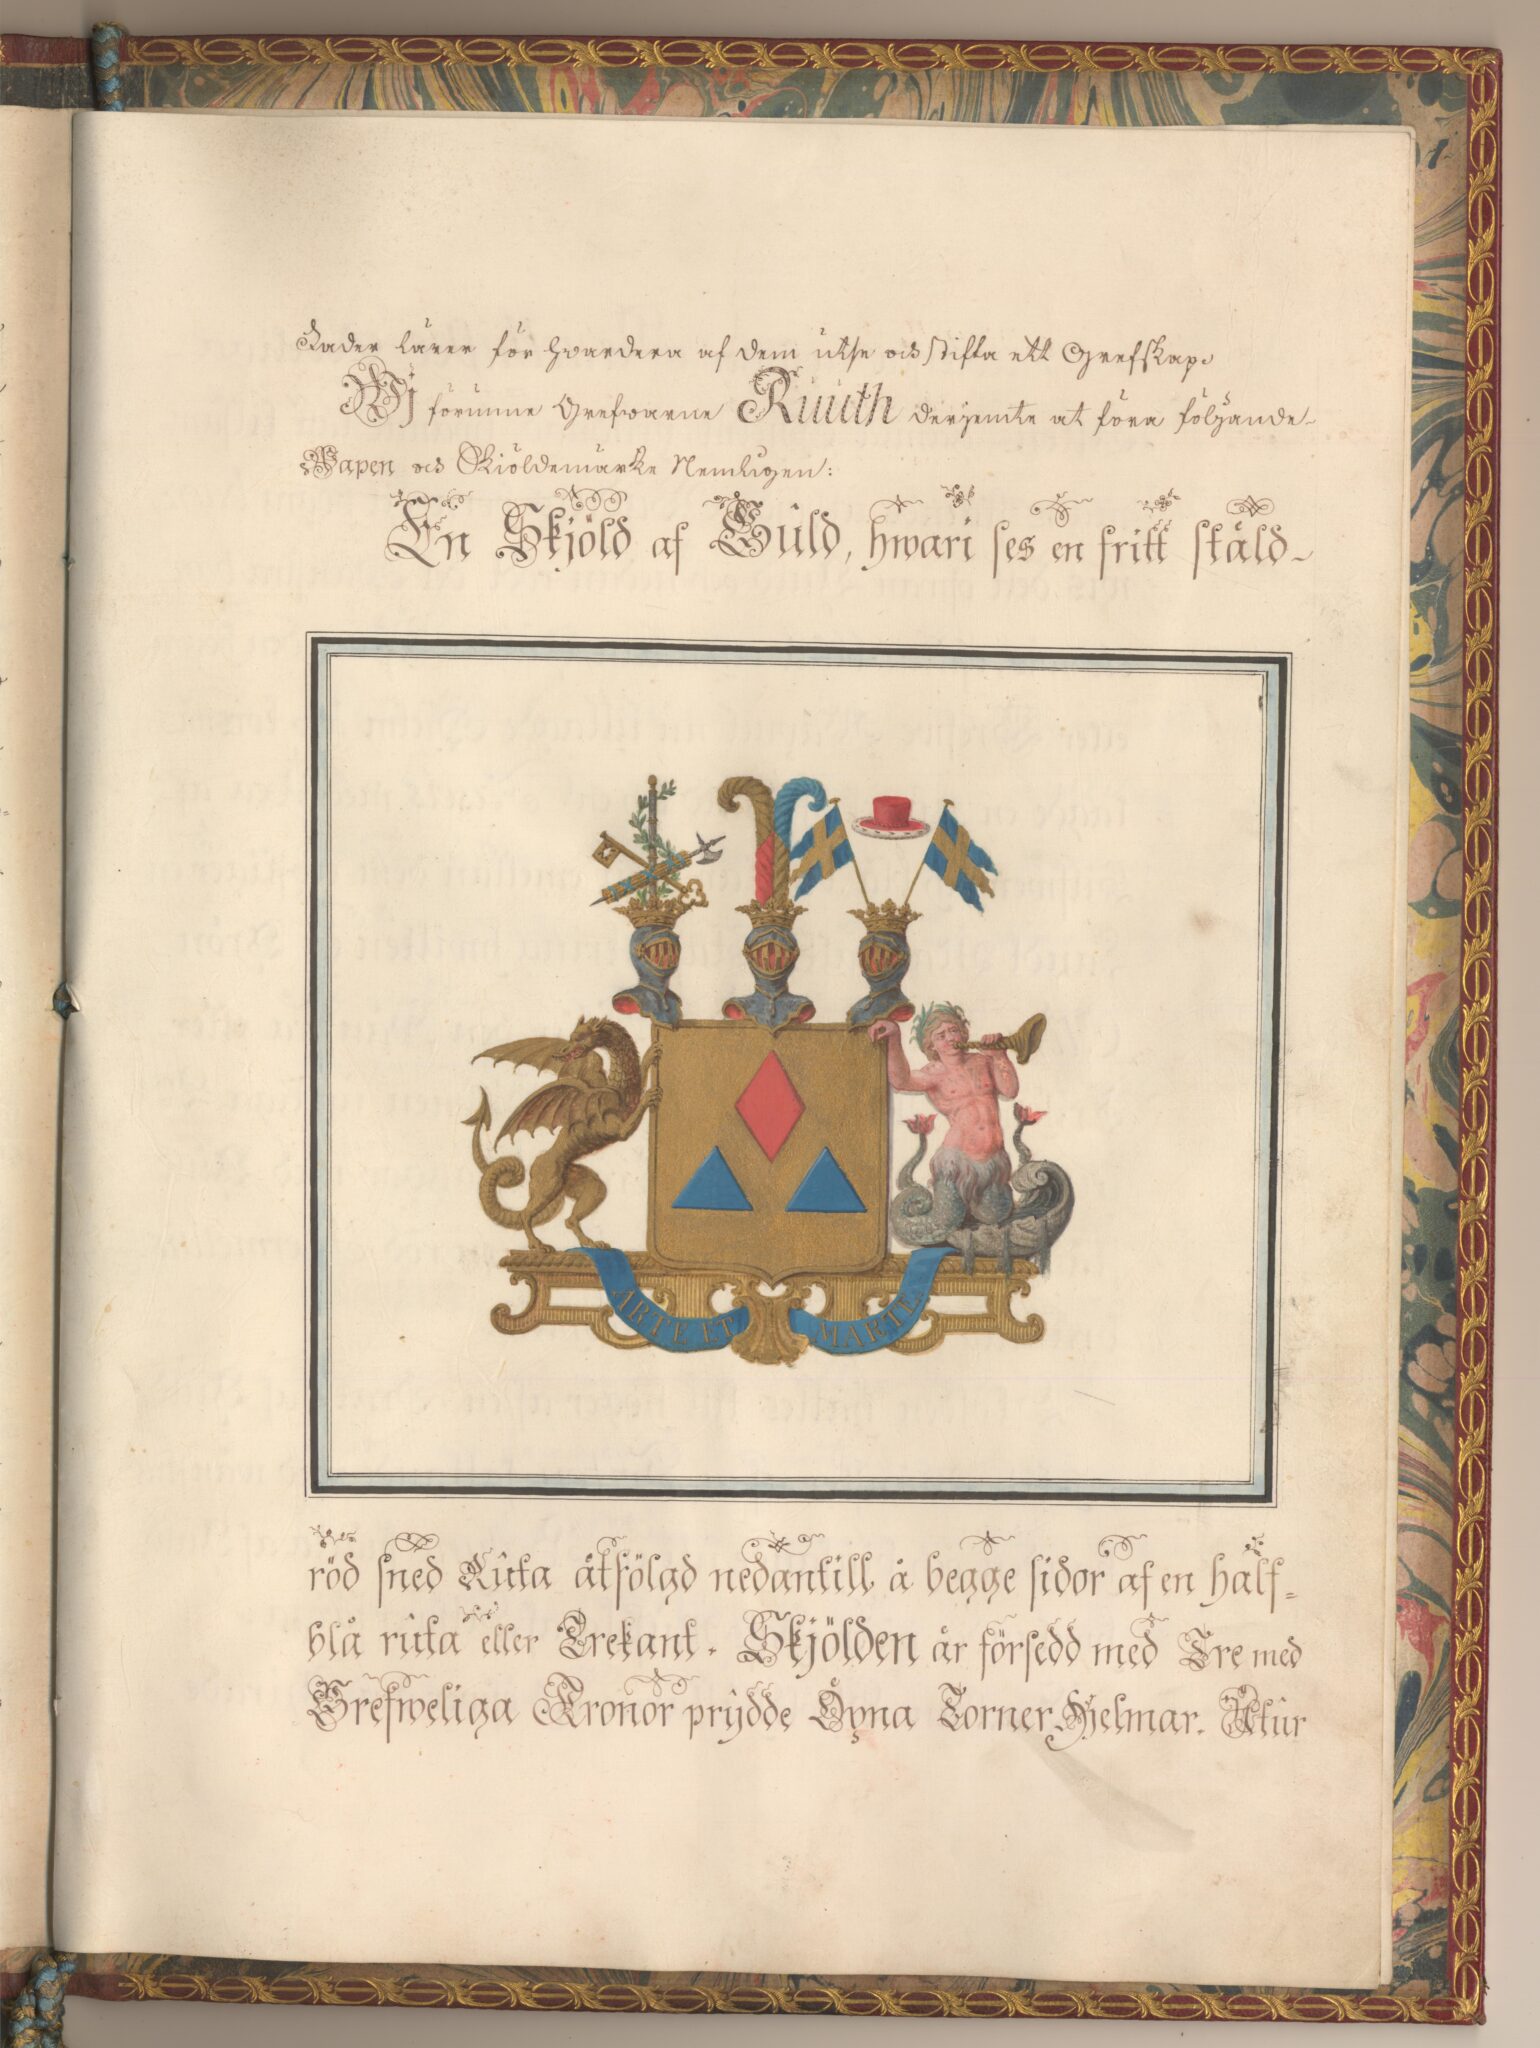 Kader lärer för hvardera af dem utse och stifta ett Grefskap.
Wj förunne Grefvarne Ruuth derjemte at föra följande
Wapen och Skiöldemärke Nemligen:
En Skjöld af Guld, hwari ses en fritt ståld
ARTE ET MARTE
röd sned Ruta åtfölgd nedantill å begge sidor af en half
blå ruta eller Trekant. Skjölden är försedd med Tre med
Grefweliga Kronor prydde Öpna Torner Hjelmar. Utur